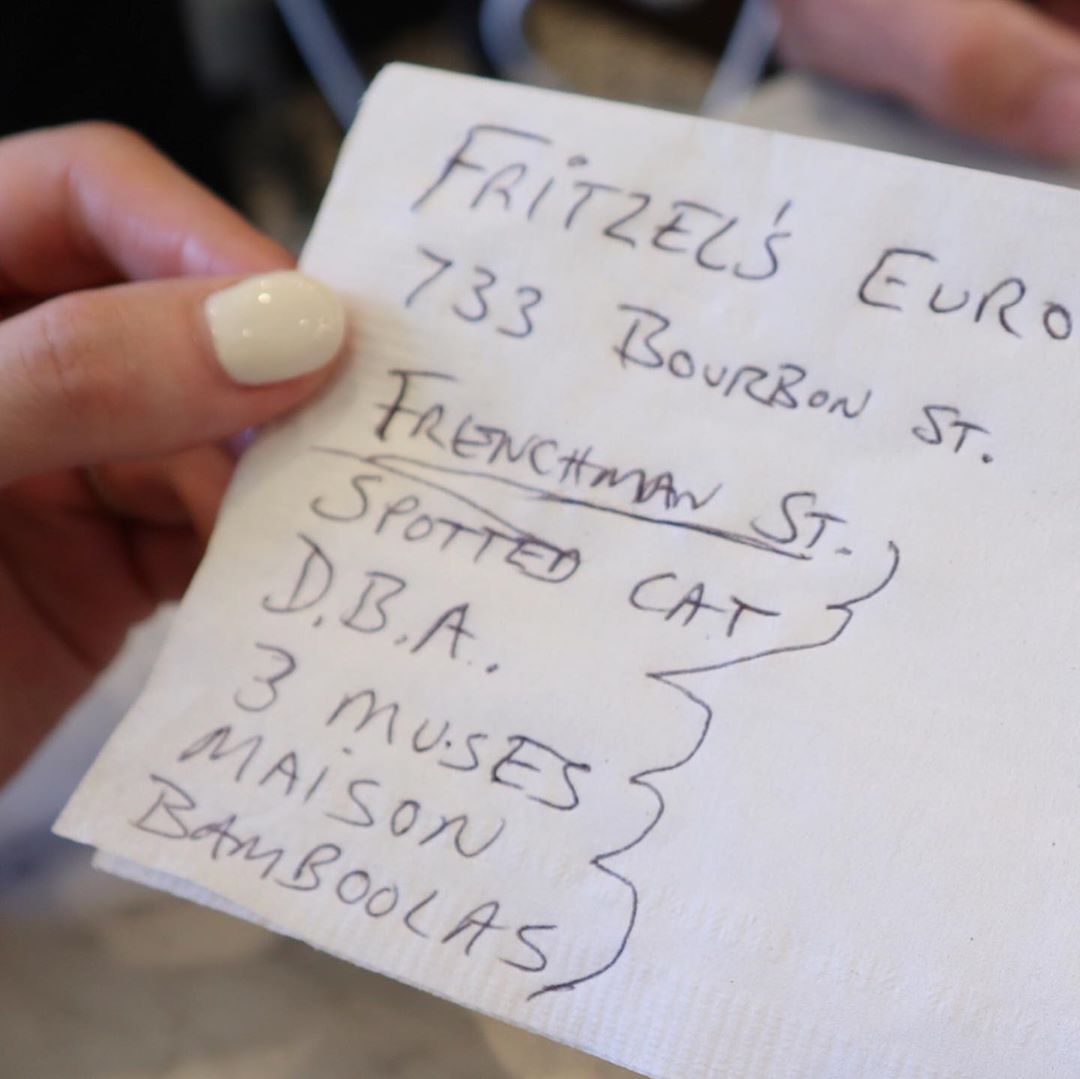 FRiTZEL'S EURO
733 BOURBON ST.
FRENCHMAN ST.
SPOTTED CAT
D.B.A.
3 MUSES
MAiSON
BAMBOOLAS